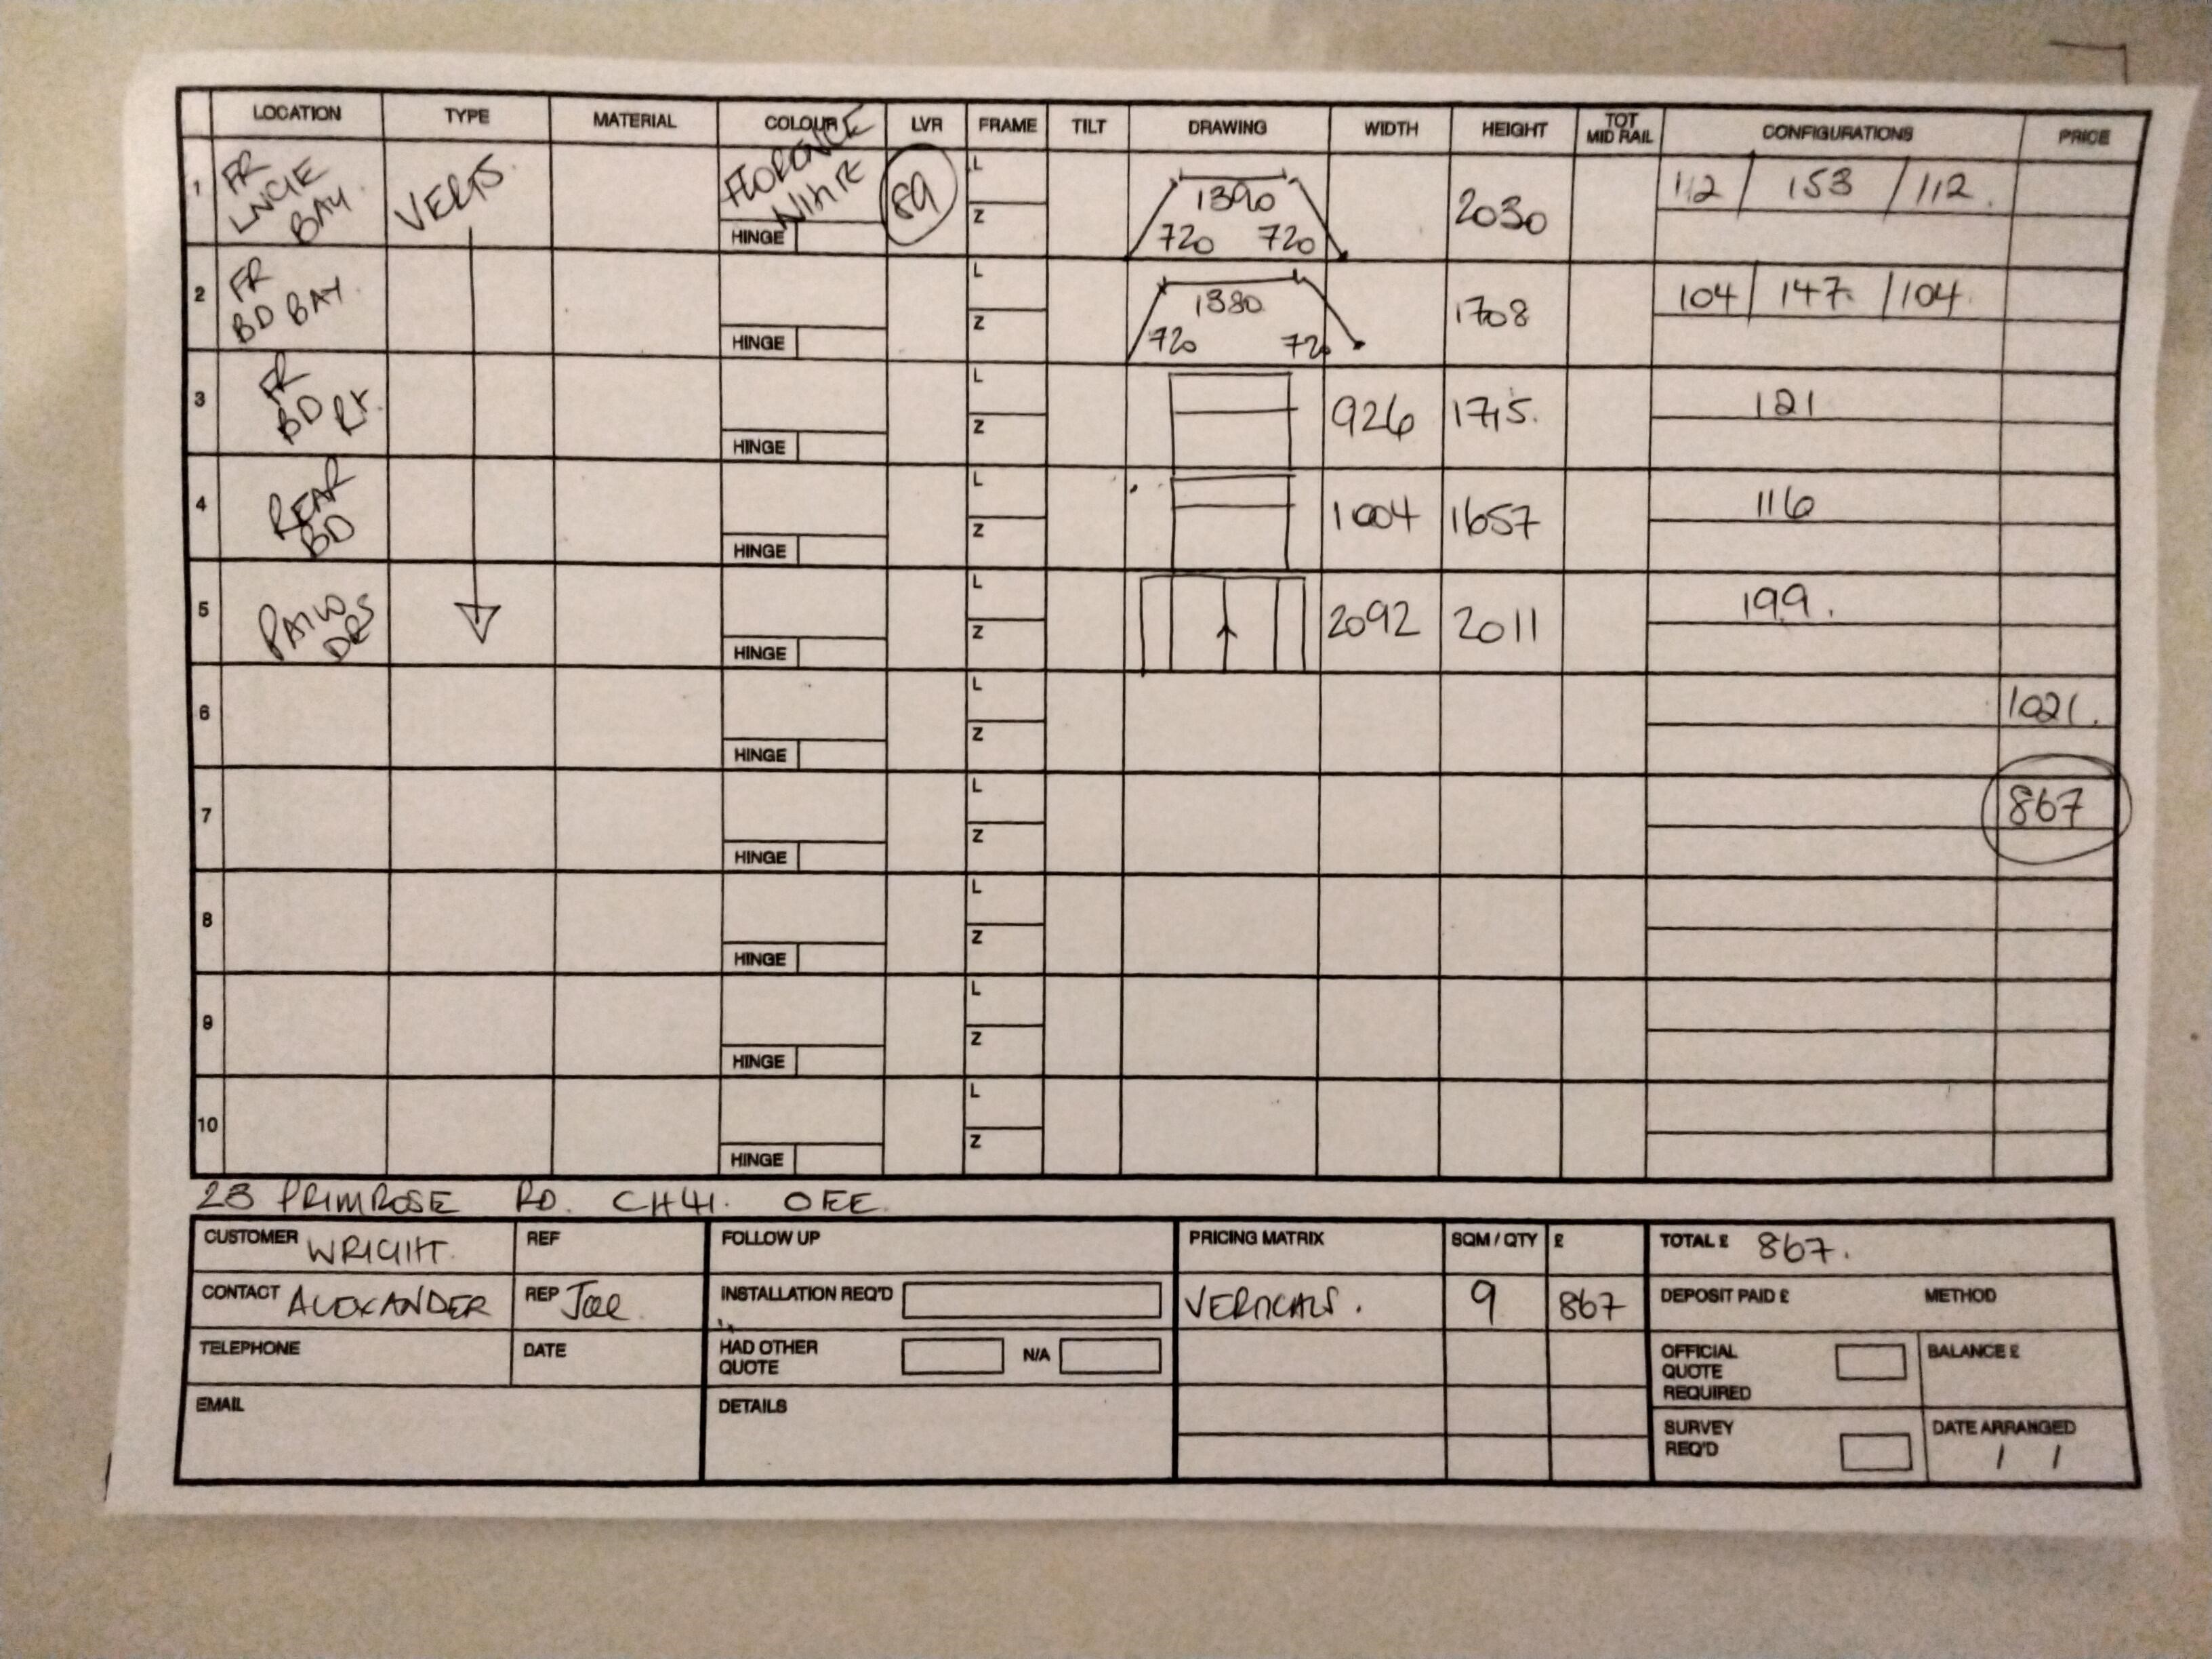 LOCATION TYPE MATERIAL COLOUR LVR FRAME TILT DRAWING WIDTH HEIGHT TOT MID RAIL CONFIGURATIONS PRICE
1 FR LNGE BAY VERTS FLORENCE WHITE HINGE 89 L Z 1390 720 720 2030 112 / 153 / 112.
2 FR BD BAY HINGE L Z 1380 720 720 1708 104 / 147. / 104.
3 FR BD RT. HINGE L Z 926 1715. 121
4 REAR BD HINGE L Z 1004 1657 116
5 PATIO DRS HINGE L Z 2092 2011 199.
6 HINGE L Z 1021.
7 HINGE L Z 867
8 HINGE L Z
9 HINGE L Z
10 HINGE L Z
28 PRIMROSE RD. CH41. OEE
CUSTOMER WRIGHT. REF FOLLOW UP PRICING MATRIX SQM / QTY £ TOTAL £ 867.
CONTACT ALEXANDER REP Joe INSTALLATION REQ'D VERTICALS. 9 867 DEPOSIT PAID £ METHOD
TELEPHONE DATE HAD OTHER QUOTE N/A OFFICIAL QUOTE REQUIRED BALANCE £
EMAIL DETAILS SURVEY REQ'D DATE ARRANGED / /